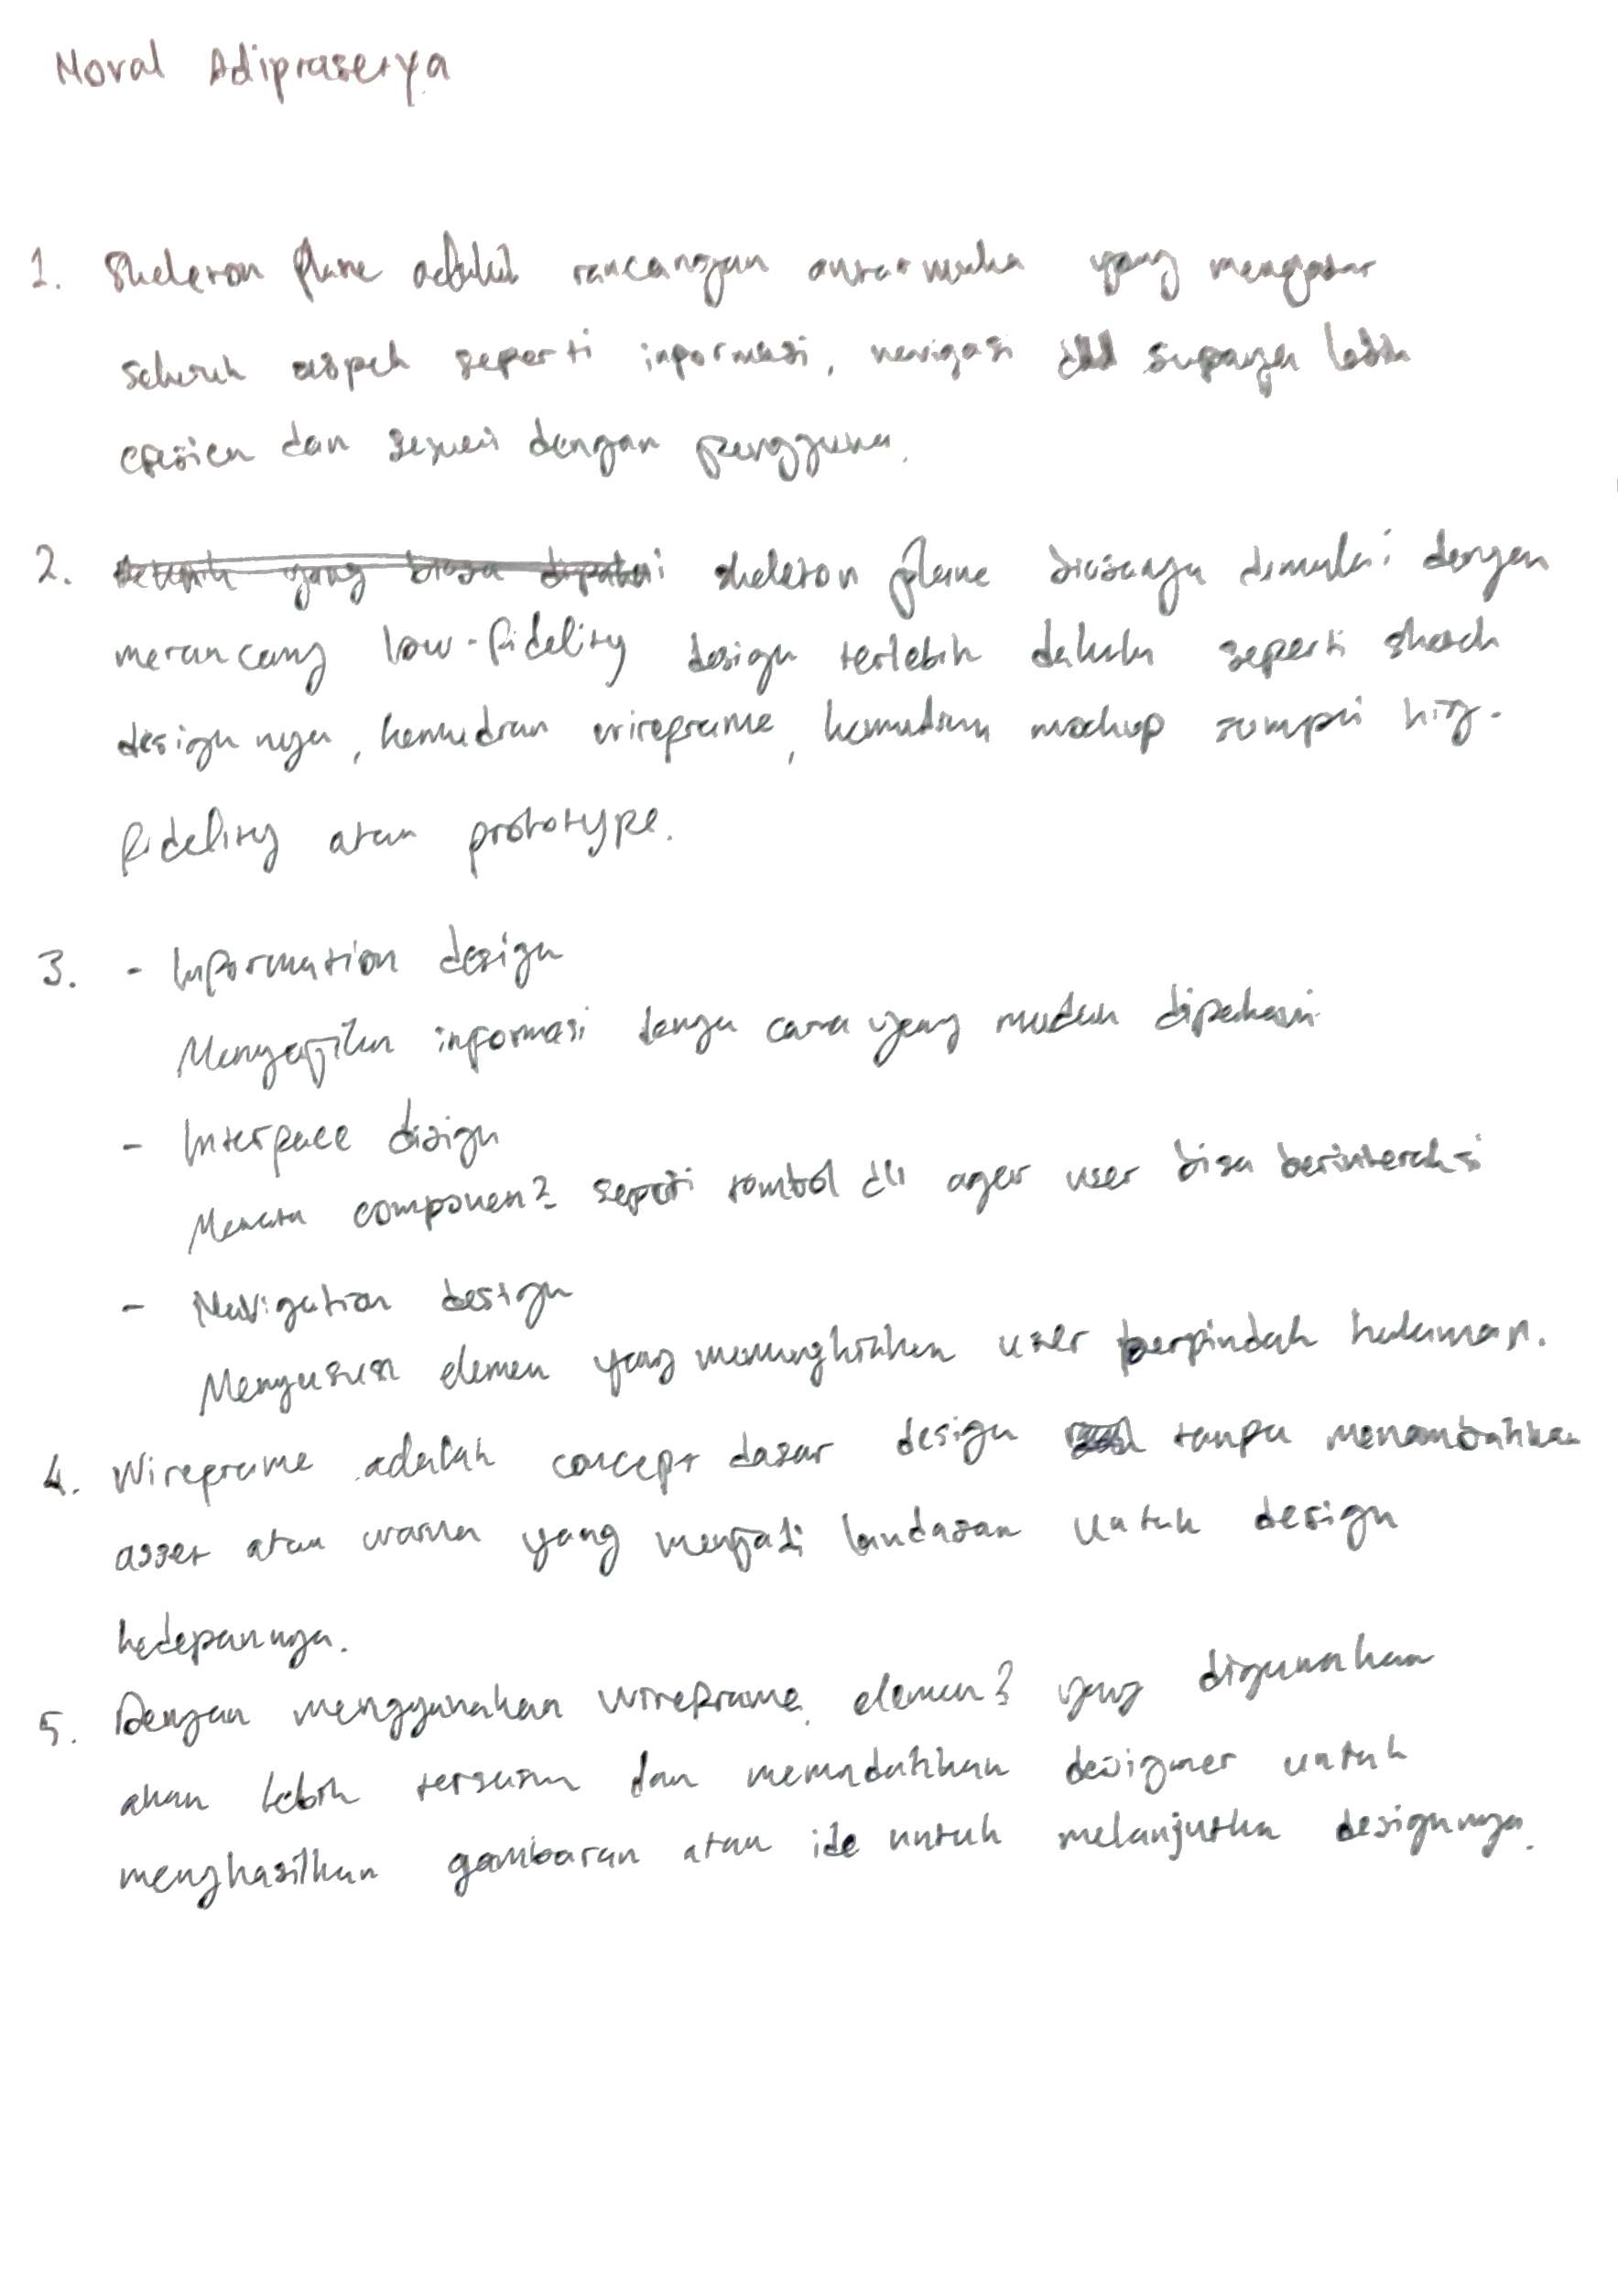 Noval Adiprasetya
1. Skeleton plane adalah rancangan antarmuka yang mengatur
seluruh aspek seperti informasi, navigasi dll supaya lebih
efisien dan sesuai dengan pengguna.
2. Teknik yang biasa dipakai skeleton plane biasanya dimulai dengan
merancang low-fidelity design terlebih dahulu seperti sketch
designnya, kemudian wireframe, kemudian mockup sampai hig-
fidelity atau prototype.
3. - Information design
Menyajikn informasi denga cara yang mudah dipahami
- Interface disign
Menata componen2 seperti tombol dll agar user bisa berinteraksi
- Navigation design
Menyusun elemen yang memungkinkan user berpindah halaman.
4. Wireframe adalah concept dasar design tanpa menambahkan
asset atau warna yang menjadi landasan untuk design
kedepannya.
5. Dengan menggunakan wireframe, elemen2 yang digunakan
akan lebih tersusun dan memudahkan designer untuk
menghasilkan gambaran atau ide untuk melanjutkn designnya.